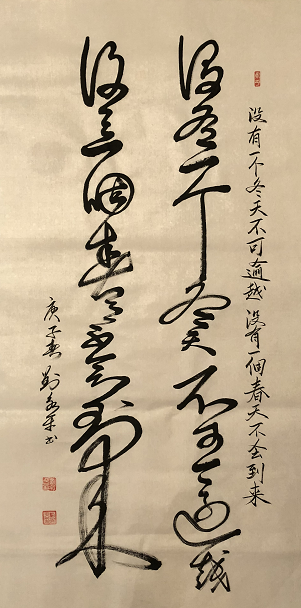 没有一个冬天不可逾越 没有一個春天不会到来
没有一个冬天不可逾越
没有一個春天不会到来
庚子春 刘书